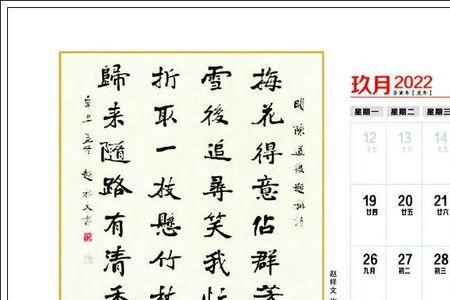 明陳道復題梅詩
梅花得意佔群芳
雪後追尋笑我忙
折取一枝懸竹杖
歸來隨路有清香
趙祥文書
赵祥文
玖月2022
壬寅年【虎年】
星期一 星期二 星期三
12 13 14
十七 十八 十九
19 20 21
廿四 廿五 廿六
26 27 28
九月 初二 初三